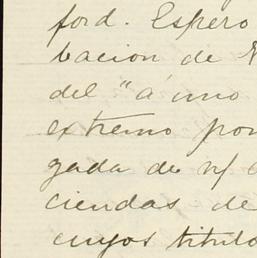 ford. Espero
bacion de
del "á uno
extremo por
gada de n/
ciendas de
cuyos titulo